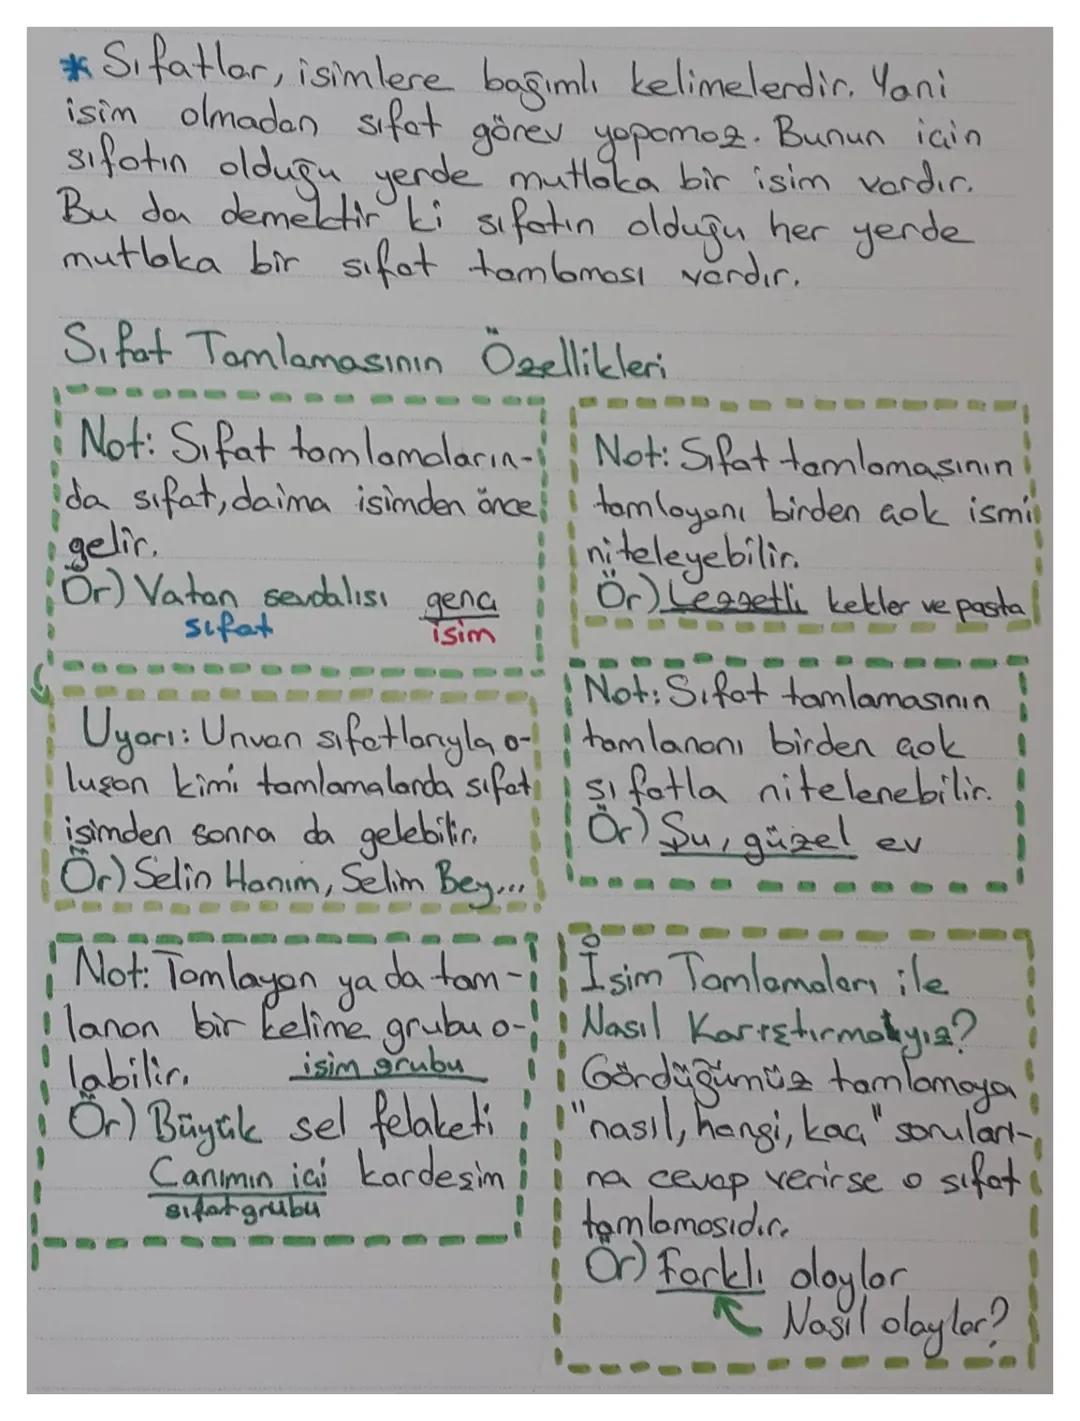 * Sıfatlar, isimlere bağımlı kelimelerdir. Yani
isim olmadan sıfat görev yapamaz. Bunun için
sıfatın olduğu yerde mutlaka bir isim vardır.
Bu da demektir ki sıfatın olduğu her yerde
mutlaka bir sıfat tamlaması vardır.
Sıfat Tamlamasının Özellikleri
Not: Sıfat tamlamaların-
da sıfat, daima isimden önce
gelir.
Ör) Vatan sevdalısı genç
sıfat isim
Uyarı: Unvan sıfatlarıyla o-
luşan kimi tamlamalarda sıfat
isimden sonra da gelebilir.
Ör) Selin Hanım, Selim Bey...
Not: Tamlayan ya da tam-
lanan bir kelime grubu o-
labilir.
isim grubu
Ör) Büyük sel felaketi
Canımın içi kardeşim
sıfat grubu
Not: Sıfat tamlamasının
tamlayanı birden çok ismi
niteleyebilir.
Ör) Lezzetli kekler ve pasta
Not: Sıfat tamlamasının
tamlananı birden çok
sıfatla nitelenebilir.
Ör) Şu, güzel ev
İsim Tamlamaları ile
Nasıl Karıştırmayız?
Gördüğümüz tamlamaya
"nasıl, hangi, kaç" soruları-
na cevap verirse o sıfat
tamlamasıdır.
Ör) Farklı olaylar
Nasıl olaylar?